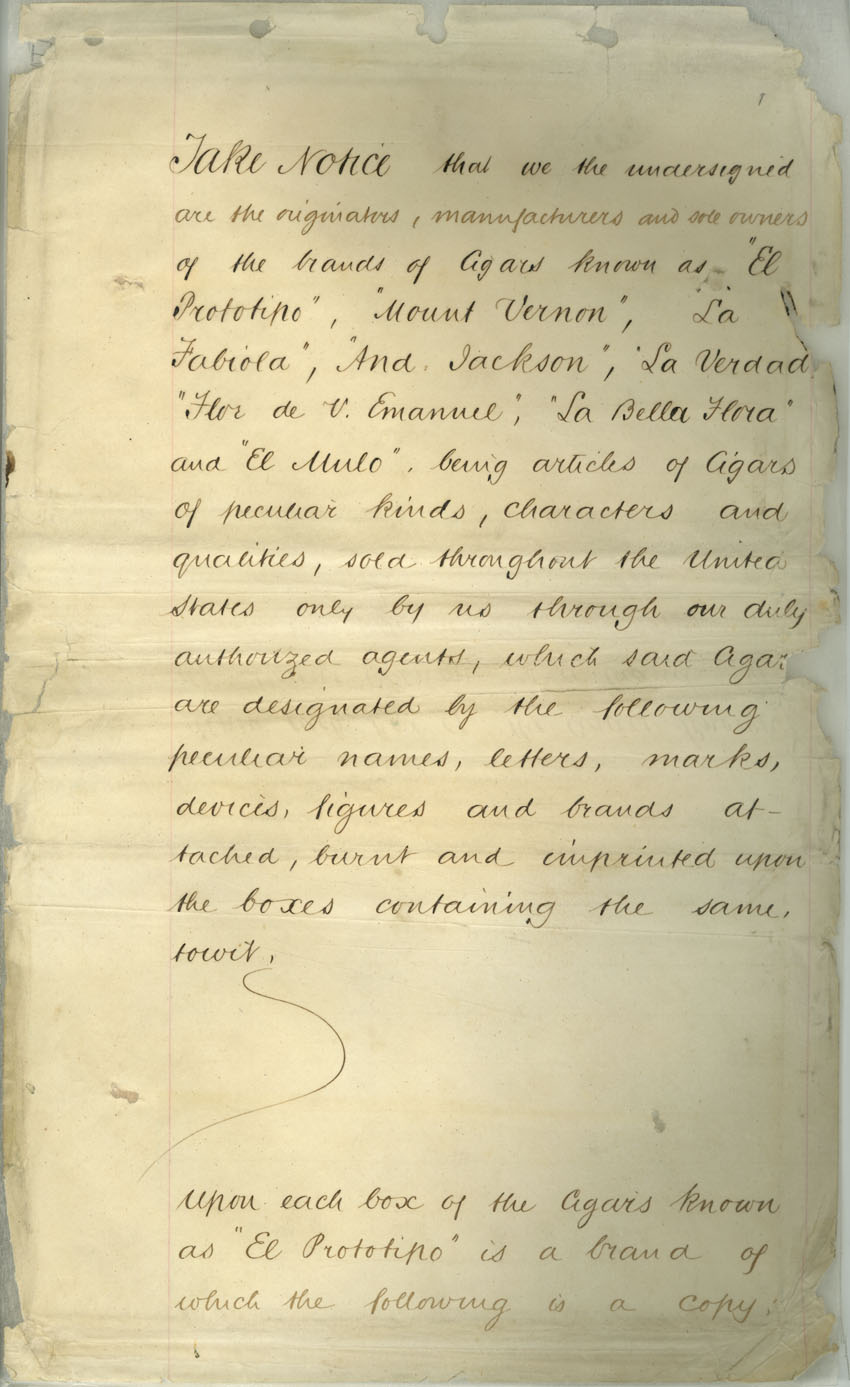 Take Notice that we the undersigned
are the originators, manufacturers and sole owners
of the brands of Cigars known as "El
Prototipo", "Mount Vernon", "La
Fabiola", "And. Jackson", "La Verdad
"Flor de V. Emanuel", "La Bella Flora"
and "El Mulo", being articles of Cigars
of peculiar kinds, characters and
qualities, sold throughout the United
States only by us through our duly
authorized agents, which said Cigar
are designated by the following
peculiar names, letters, marks,
devices, figures and brands at-
tached, burnt and imprinted upon
the boxes containing the same,
towit,
Upon each box of the Cigars known
as "El Prototipo" is a brand of
which the following is a copy: